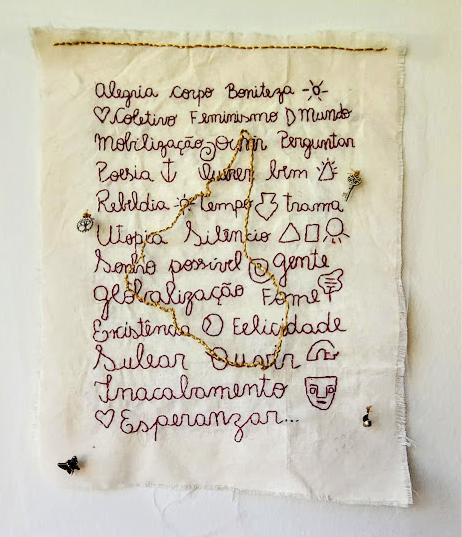 Alegria corpo Boniteza
Coletivo Feminismo D Mundo
Mobilização Ouvir Perguntar
Poesia Querer bem
Rebeldia tempo trama
Utopia Silêncio
Sonho possível gente
globalização Fome
Existência Felicidade
Sulear Ouvir
Inacabamento
Esperanzar...